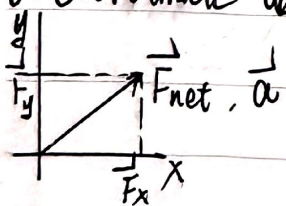 y
F⃗y
F⃗net, a⃗
F⃗x X